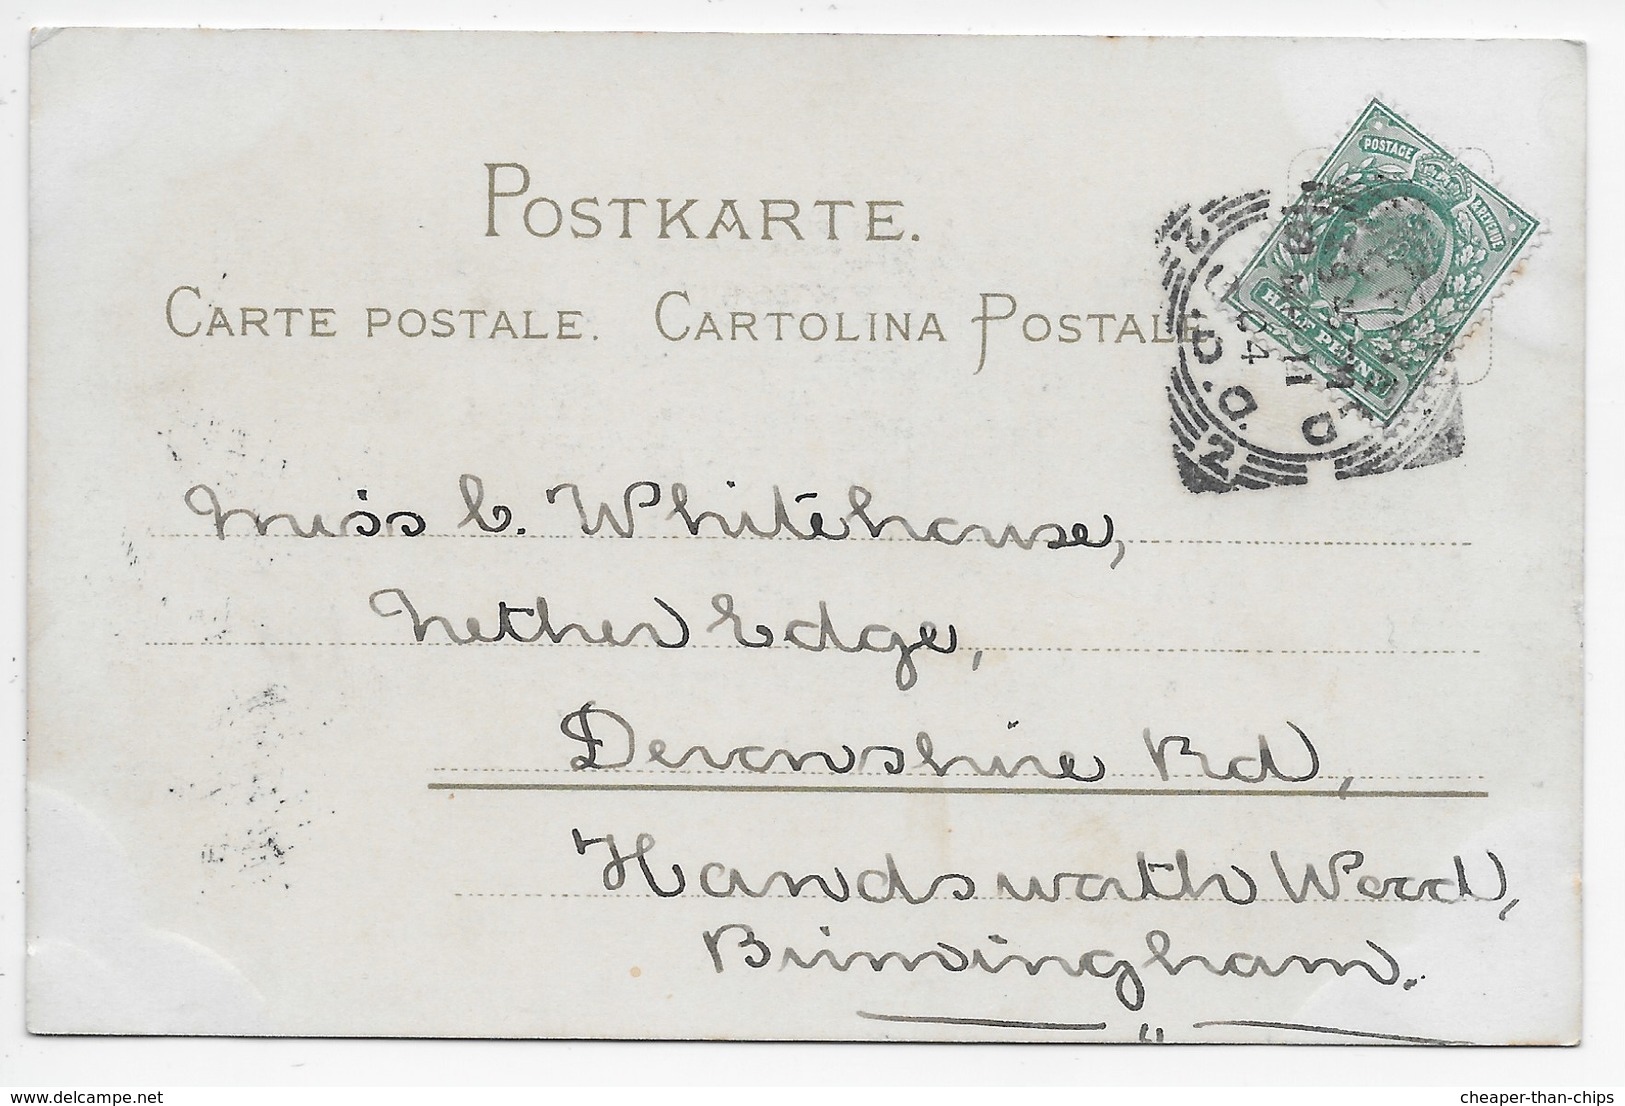 POSTKARTE.
CARTE POSTALE. CARTOLINA POSTALE
POSTAGE & REVENUE
HALF PENNY
2
04
2
Miss C. Whitehouse,
Nether Edge,
Devonshire Rd,
Handsworth Wood,
Birmingham.
delcampe.net
cheaper-than-chips